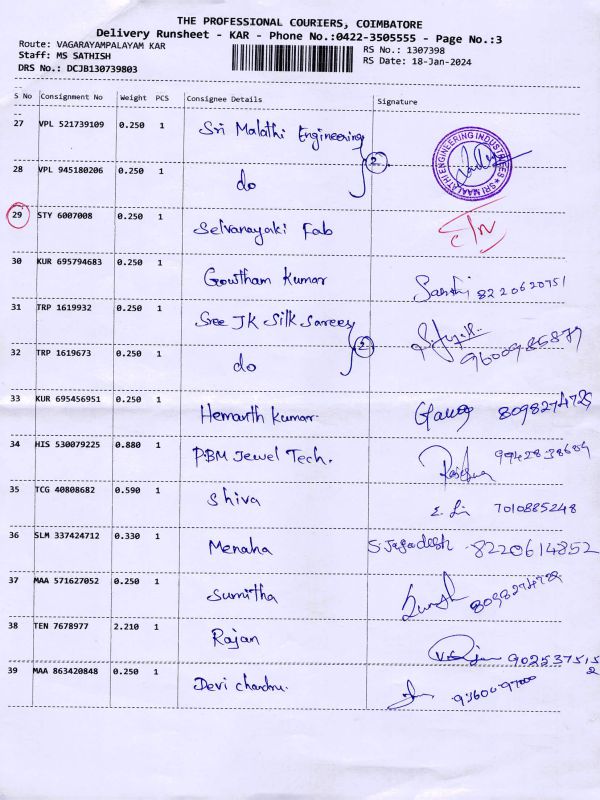 THE PROFESSIONAL COURIERS, COIMBATORE
Delivery Runsheet - KAR - Phone No.:0422-3505555 - Page No.:3
Route: VAGARAYAMPALAYAM KAR RS No.: 1307398
Staff: MS SATHISH RS Date: 18-Jan-2024
DRS No.: DCJB130739803
S No Consignment No Weight PCS Consignee Details Signature
27 VPL 521739109 0.250 1 Sri Malathi Engineering
2
SRI MAALATHI ENGINEERING INDUSTRIES
28 VPL 945180206 0.250 1 do
29 STY 6007008 0.250 1 Selvanayaki Fab
30 KUR 695794683 0.250 1 Gowtham Kumar 8220620751
31 TRP 1619932 0.250 1 Sree JK Silk Sarees
2
32 TRP 1619673 0.250 1 do
33 KUR 695456951 0.250 1 Hemanth Kumar. 8098274729
34 HIS 530079225 0.880 1 PBM Jewel Tech.
35 TCG 40808682 0.590 1 Shiva 7010885248
36 SLM 337424712 0.330 1 Menaha S. Jagadeesh 8220614852
37 MAA 571627052 0.250 1 Sumitha 8098274729
38 TEN 7678977 2.210 1 Rajan 9025375152
39 MAA 863420848 0.250 1 Devi chandru.